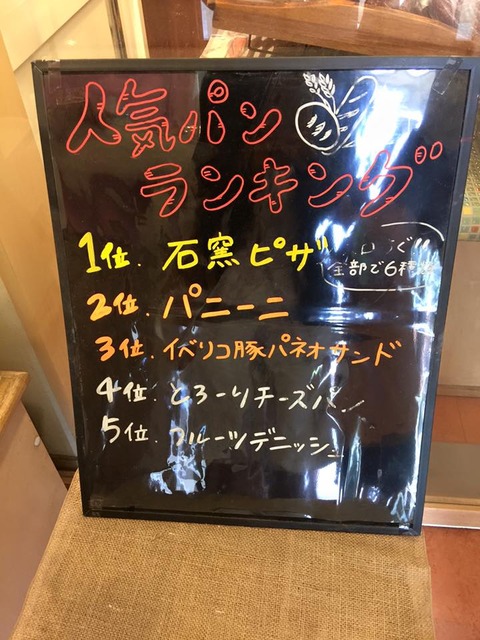 人気パン
ランキング
1位. 石窯ピザ
全部で6種類
2位. パニーニ
3位. イベリコ豚パネオサンド
4位. とろーりチーズパン
5位. フルーツデニッシュ